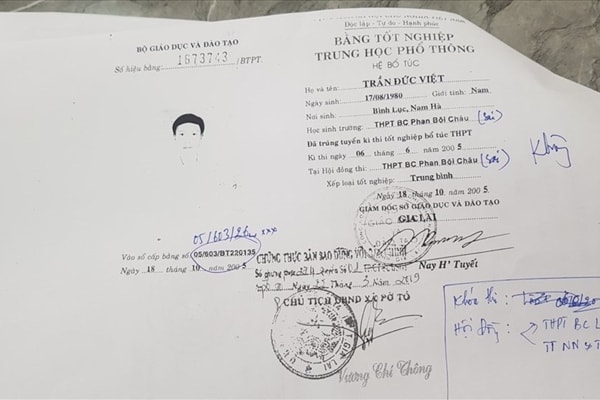 Độc lập - Tự do - Hạnh phúc
BỘ GIÁO DỤC VÀ ĐÀO TẠO
Số hiệu bằng: 1673743 /BTPT.
BẰNG TỐT NGHIỆP
TRUNG HỌC PHỔ THÔNG
HỆ BỔ TÚC
Họ và tên: TRẦN ĐỨC VIỆT
Ngày sinh: 17/08/1980 Giới tính: Nam
Nơi sinh: Bình Lục, Nam Hà
Học sinh trường: THPT BC Phan Bội Châu (Sai)
Đã trúng tuyển kì thi tốt nghiệp bổ túc THPT
Kì thi ngày 06 tháng 6 năm 2005
Tại Hội đồng thi: THPT BC Phan Bội Châu (Sai)
Xếp loại tốt nghiệp: Trung bình
Ngày 18 tháng 10 năm 2005
GIÁM ĐỐC SỞ GIÁO DỤC VÀ ĐÀO TẠO
GIA LAI
Nay H' Tuyết
05/603/
Vào sổ cấp bằng số 05/603/BT220135
Ngày 18 tháng 10 năm 2005
CHỨNG THỰC BẢN SAO ĐÚNG VỚI
Ngày 22 Tháng 3 Năm 2019
CHỦ TỊCH UBND XÃ PỜ TÓ
GIA LAI
Vương Chí Thông
Khóa thi:
Hội đồng: THPT BC L
TT NN